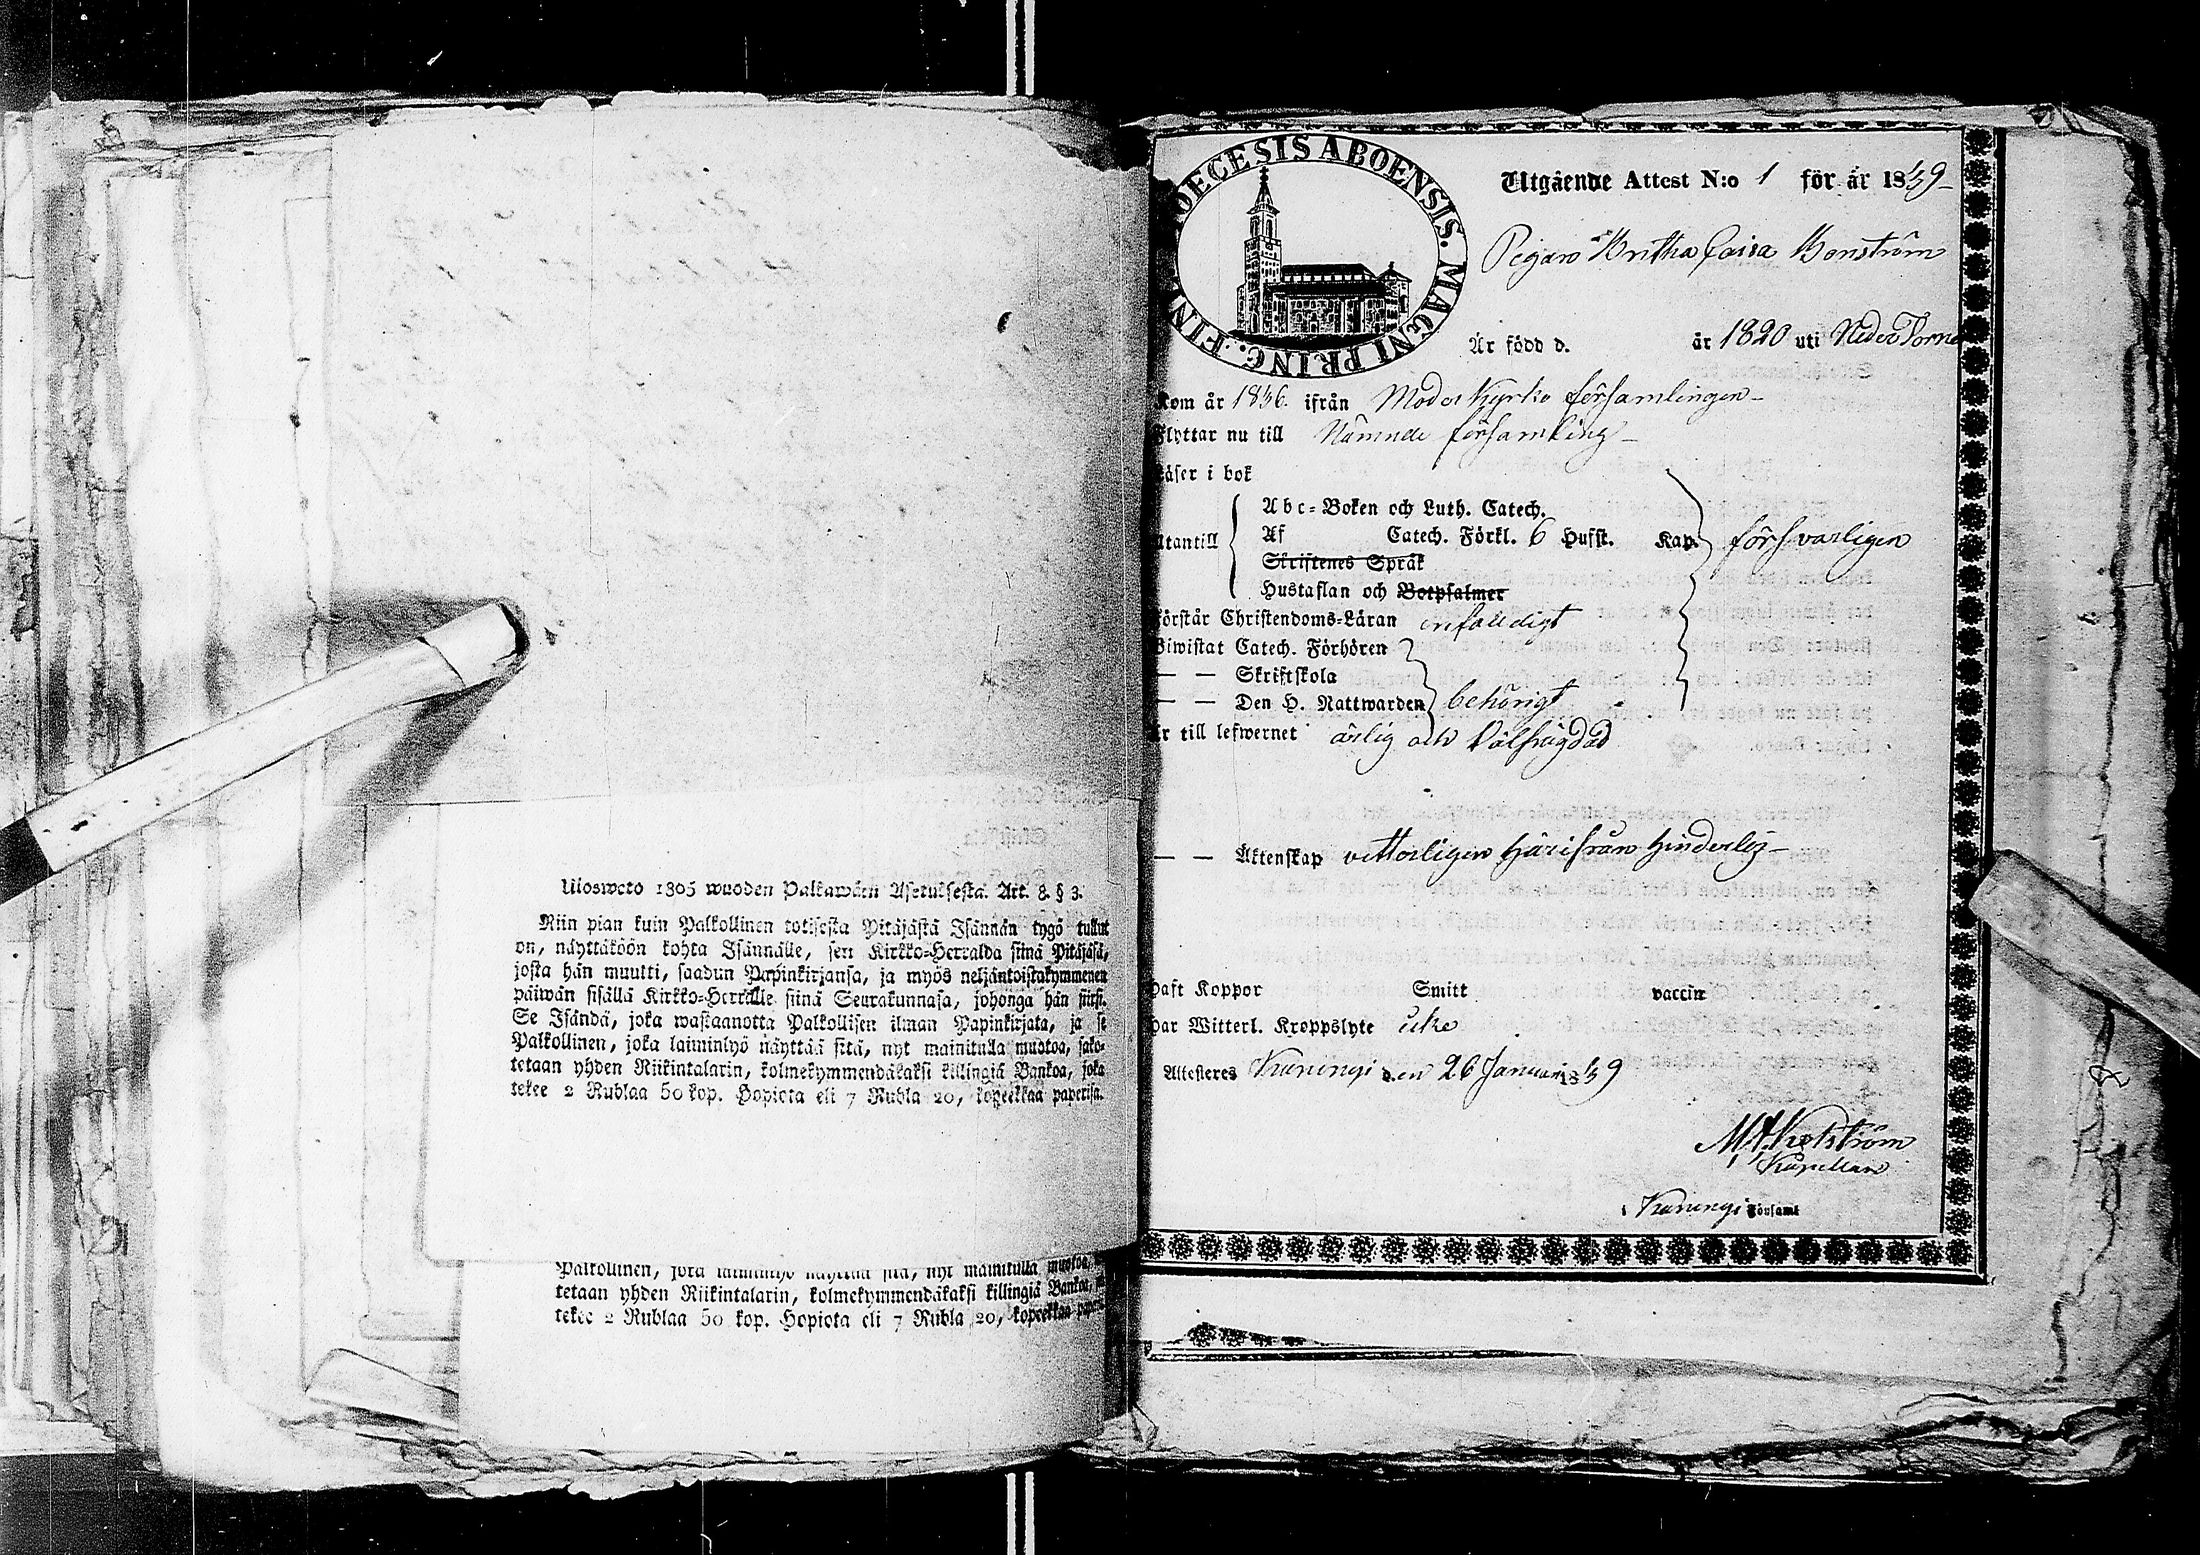 Ulosweto 1805 wuoden Palkawäen Asetuksesta. Art. 8. § 3.
Niin pian kuin Palkollinen toisesta Pitäjästä Isännän tygö tullut
on, näyttäköön kohta Isännälle, sen Kirkko-Herralda siinä Pitäjäsä,
josta hän muutti, saadun Papinkirjansa, ja myös neljäntoistakymmenen
päiwän sisällä Kirkko-Herralle siinä Seurakunnasa, johonga hän siirsi.
Se Isändä, joka wastaanotta Palkollisen ilman Papinkirjata, ja se
Palkollinen, joka laiminlyö näyttää sitä, nyt mainitulla muotoa, sako-
tetaan yhden Riikintalarin, kolmekymmendäkaksi killingiä Bankoa, joka
tekee 2 Rublaa 50 kop. Hopiota eli 7 Rubla 20, kopeekkaa paperisa.
Palkollinen, joka laiminlyö näyttää sitä, nyt mainitulla muotoa,
tetaan yhden Riikintalarin, kolmekymmendäkaksi killingiä Bankoa,
tekee 2 Rublaa 50 kop. Hopiota eli 7 Rubla 20, kopeekkaa
DIOECESIS ABOENSIS. MAGNI PRINC. FINL
Utgående Attest N:o 1 för år 1839
Pigan Britha Caisa Bonström
Är född d. år 1820 uti Neder Torne
Kom år 1836. ifrån Moderkyrko församlingen
Flyttar nu till Nämnde församling
Läser i bok
Utantill
Abc-Boken och Luth. Catech.
Af Catech. Förkl. 6 Hufst. Kap. försvarligen
Skriftenes Språk
Hustaflan och Botpsalmer
Förstår Christendoms-Läran enfaldigt
Biwistat Catech. Förhören
— — Skriftskola
— — Den H. Nattwarden behörigt
Är till lefwernet ärlig och välfrägdad
— — Äktenskap vetterligen härifrån hinderlös
Haft Koppor Smitt vaccin
Har Witterl. Kroppslyte icke
Attesteras Karungi den 26 Januari 1839
Kapellan
i Karungi Församl